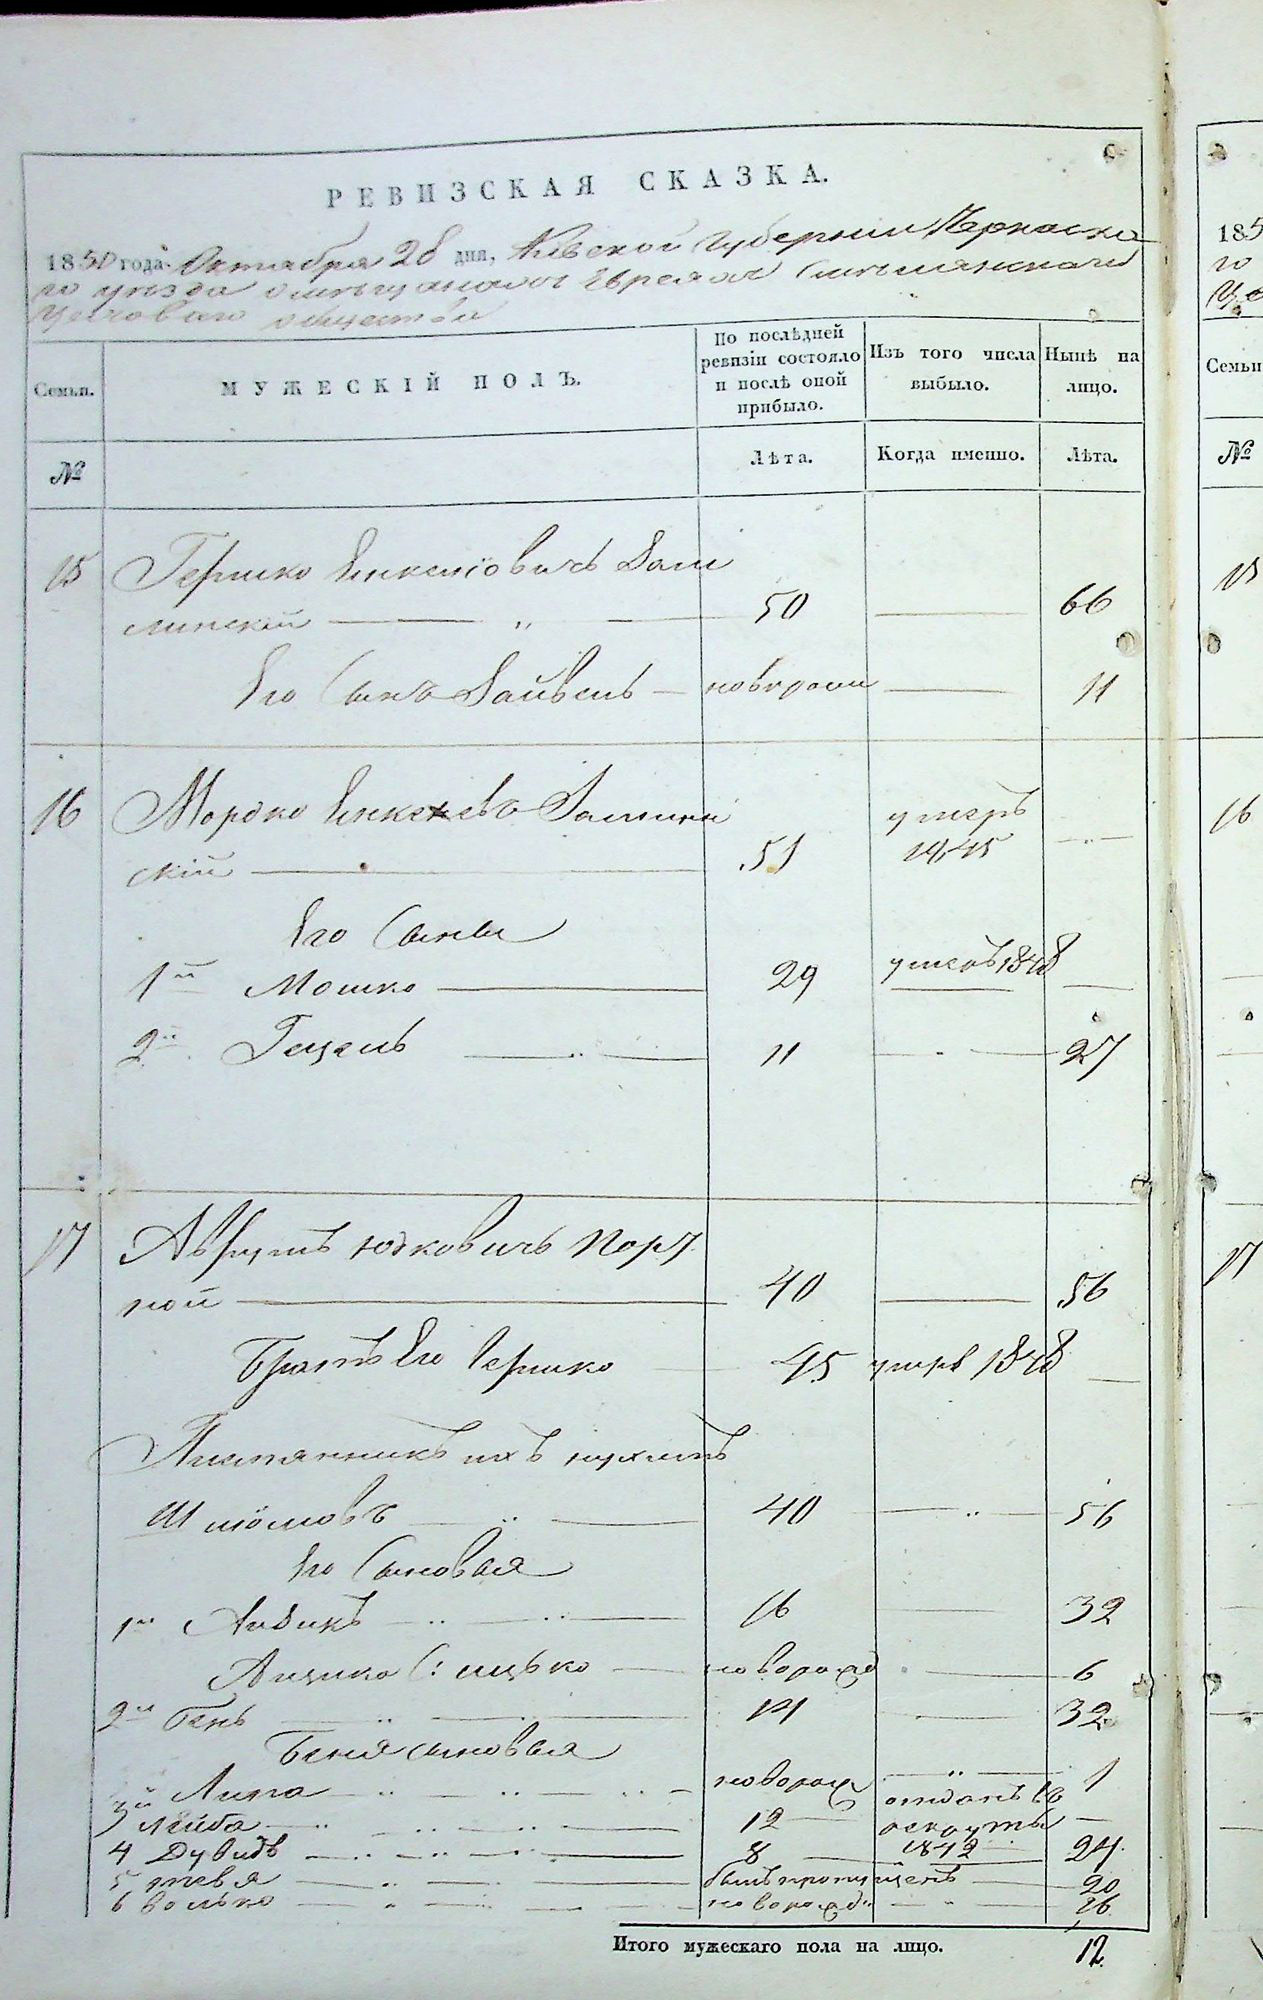 РЕВИЗСКАЯ СКАЗКА.
1850 года Октября 28 дня, Киевской Губернии Черкаска
го уезда о мещанахъ Евреяхъ
общества
Семьи.
МУЖЕСКІЙ ПОЛЪ.
По послѣдней ревизіи состояло и послѣ оной прибыло.
Изъ того числа выбыло.
Нынѣ на лицо.
№
Лѣта.
Когда именно.
Лѣта.
15 Гершко
50 66
Его Сынъ новорожд 11
16 Мордко
скій 51 умеръ 1845
Его Сыны
1й Мошко 29 умеръ 1848
2й Гецель 11 27
17 Аврумъ Юдковичъ Порт
ной 40 56
Братъ Его Гершко 45 умеръ 1848
Племянникъ ихъ Нухимъ
Шліомовъ 40 56
Его Сыновья
1й Айзикъ 16 32
Айзика С: Ицько новорожд 6
2й Бень 14 32
Беня сыновья
Липа новорож 1
3й Лейба 12 отданъ въ рекруты 1842
4 Дувидъ 8 24
5 Тевя былъ пропущенъ 20
6 Волько новорожд 16
Итого мужескаго пола на лицо. 12
185
го
Семьи
№
15
16
17